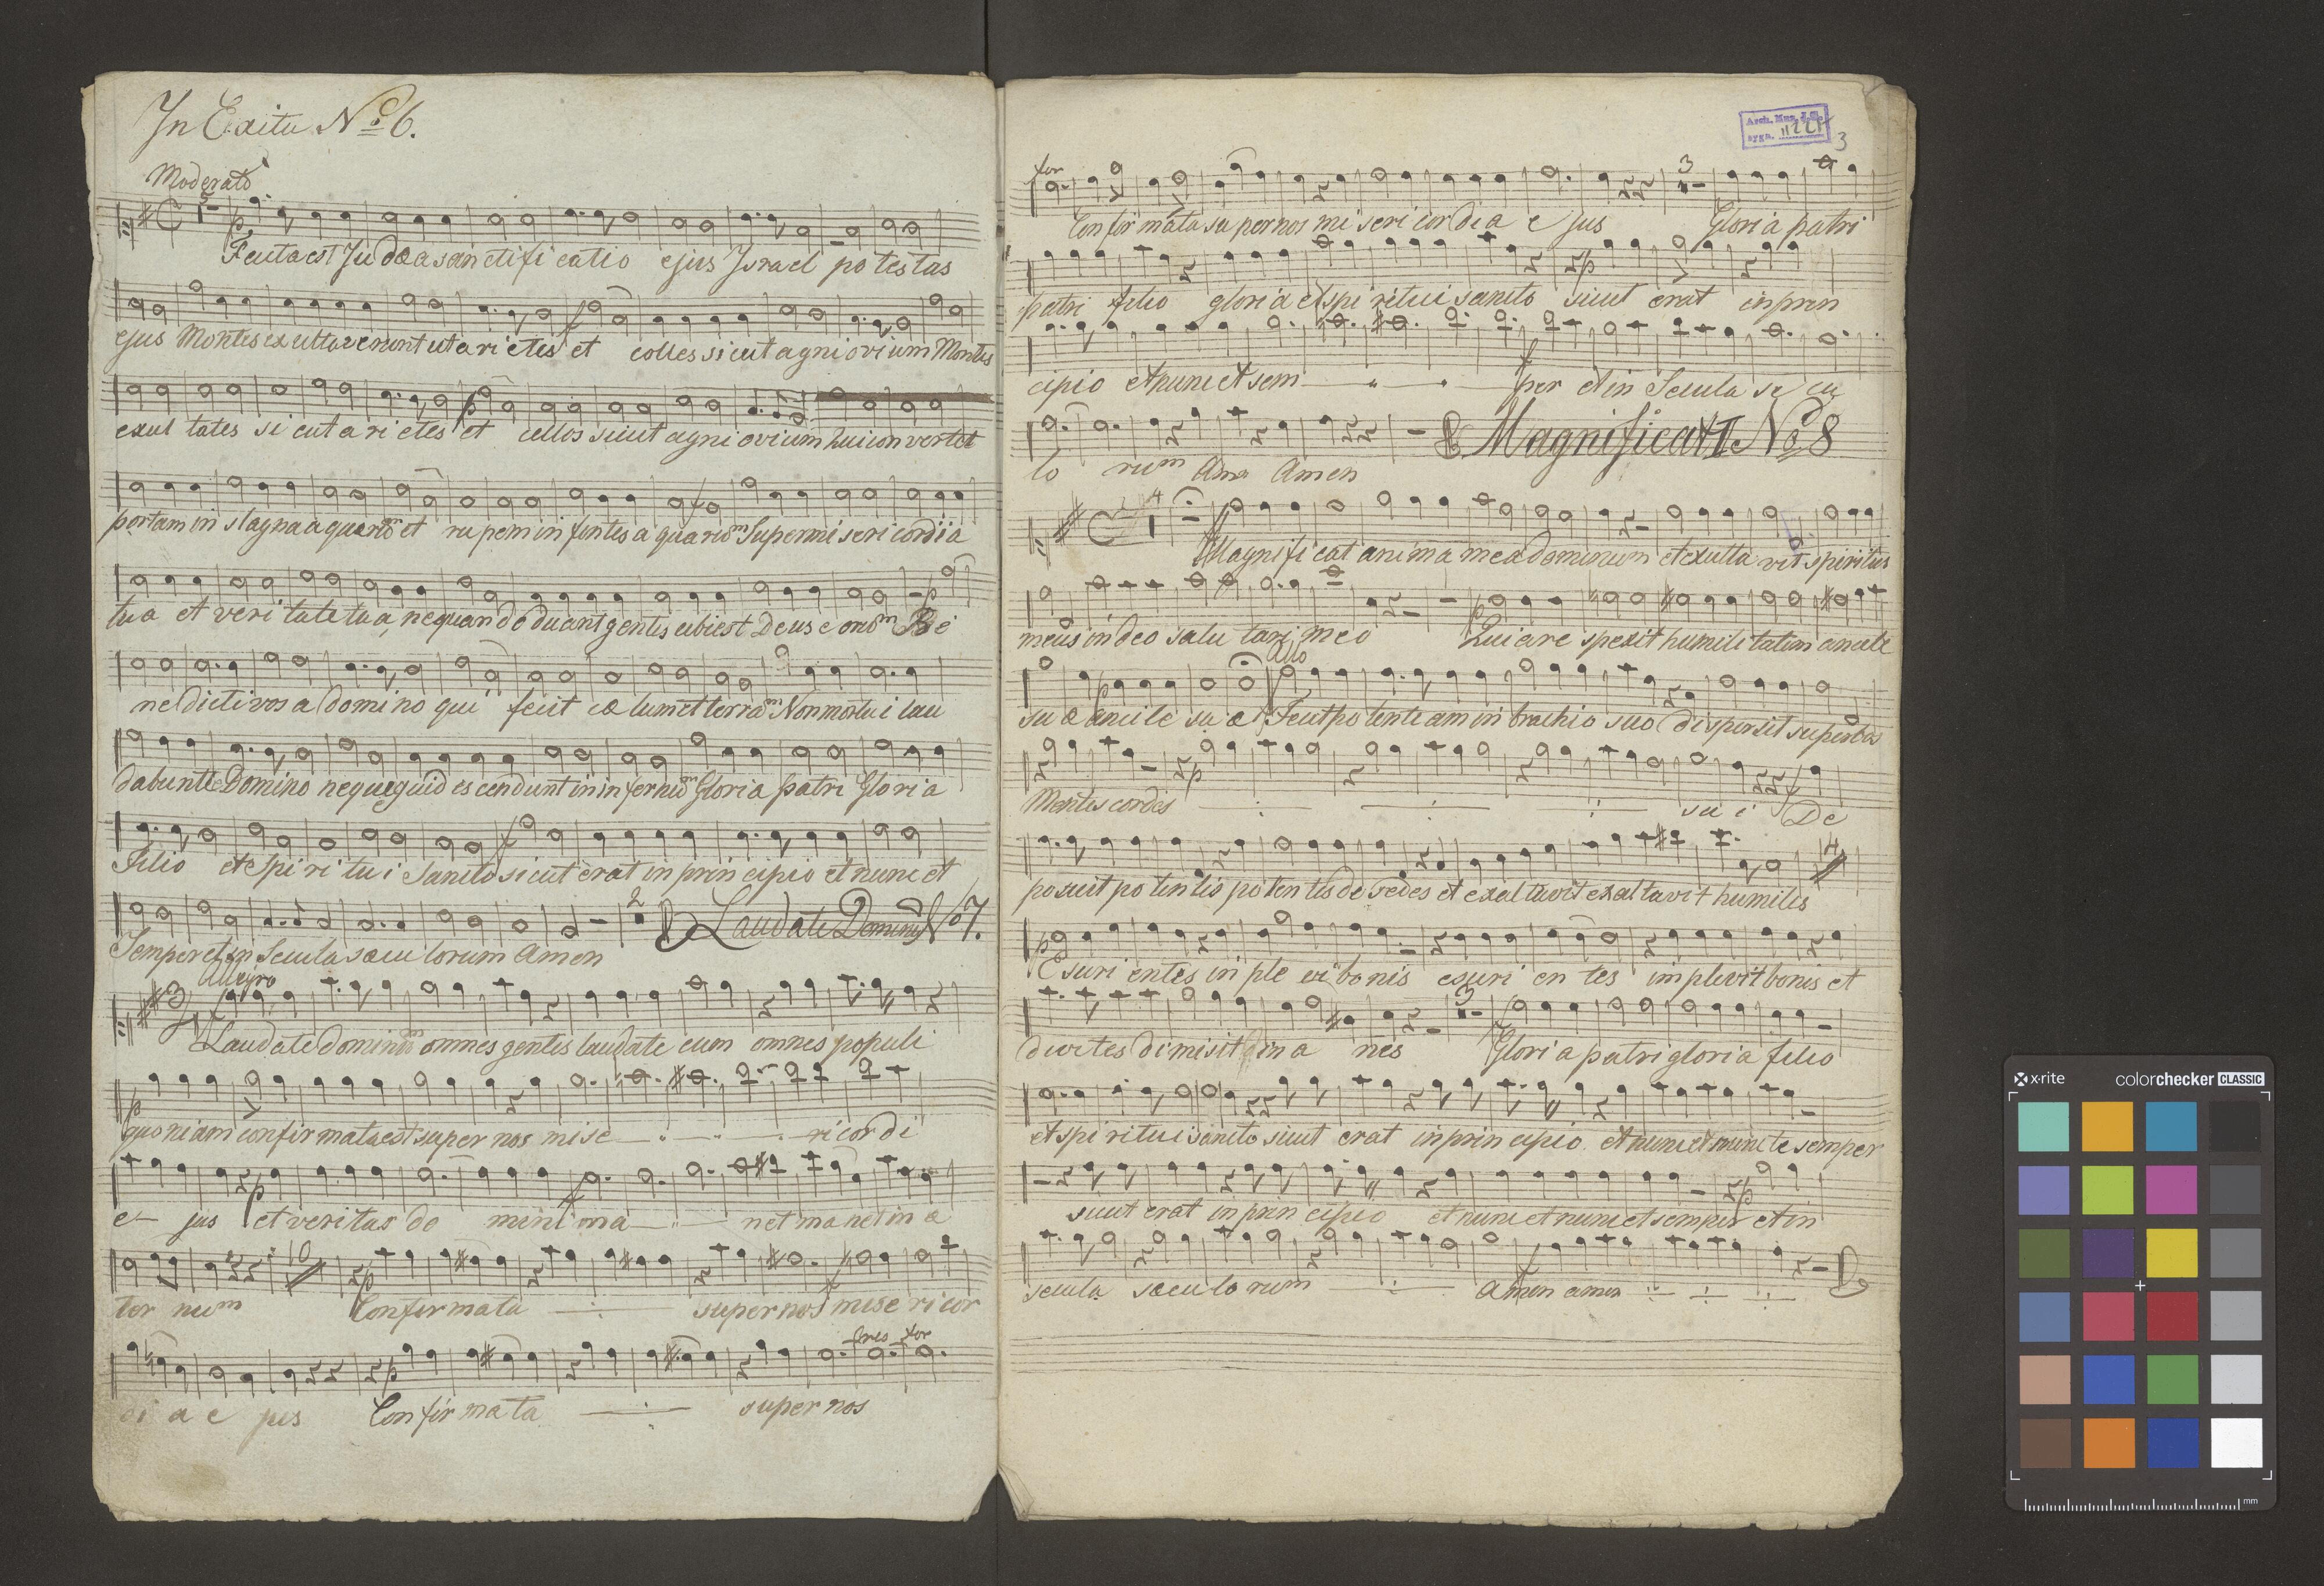 In Exitu No 6.
Moderato
5
Feuta est Judæa sanctificatio ejus Israel potestas
ejus Montes exultaverunt ut arietes et colles sicut agni ovium Montes
exultastes sicut arietes et colles sicut agni ovium hui convertet
portam in stagna aquarom et rupem in fontes aquariom Super misericordiia
tua et veritate tua, nequando duant gentes ubi est Deus eonom Be
nedicti vos a domino qui fecit cælum et terram Non mortui lau
dabunt te Domino neque quid escendunt in infernum Gloria patri Gloria
Filio et Spiritui Sancto sicut erat in principio et nunc et
2
Laudate Dominum No 7.
Semper et in Secula sæculorum Amen
Allegro
Laudate dominum omnes gentes laudate eum omnes populi
p
quoniam confirmata est super nos mise ricordi
p f
e jus et veritas do mini ma net manet in æ
10 p f
ter num Confirmata super nos misericor
p fres for
di a e jus Confirmata super nos
Arch. Mus. J.G.
sygn.
3
for 3
Confirmata super nos misericordia ejus Gloria patri
p
patri filio gloria et spiritui sancto sicut erat in prin
f
cipio et nunc et sem per et in Secula se cu
Magnificat II No 8
lo rum Amen Amen
4
Magnificat anima mea dominum et exultavit spiritus
p
meus in deo salutari meo Quia respexit humilitatem ancile
Allo
p
suæ ancile suæ Fecit potentiam in brachio suo dispersit superbos
p f
Mentes cordis sui De
14
posuit potentes potentes de sedes et exaltavit exaltavit humiles
p
Esurientes inple vi bonis esurientes implevit bonis et
3
divites dimisit inanes Gloria patri gloria filio
et spiritui sancto sicut erat in principio et nunc et nunc te semper
p
sicut erat in principio et nunc et nunc et semper et in
f
secula sæculorum amen amen
x-rite colorchecker CLASSIC
mm